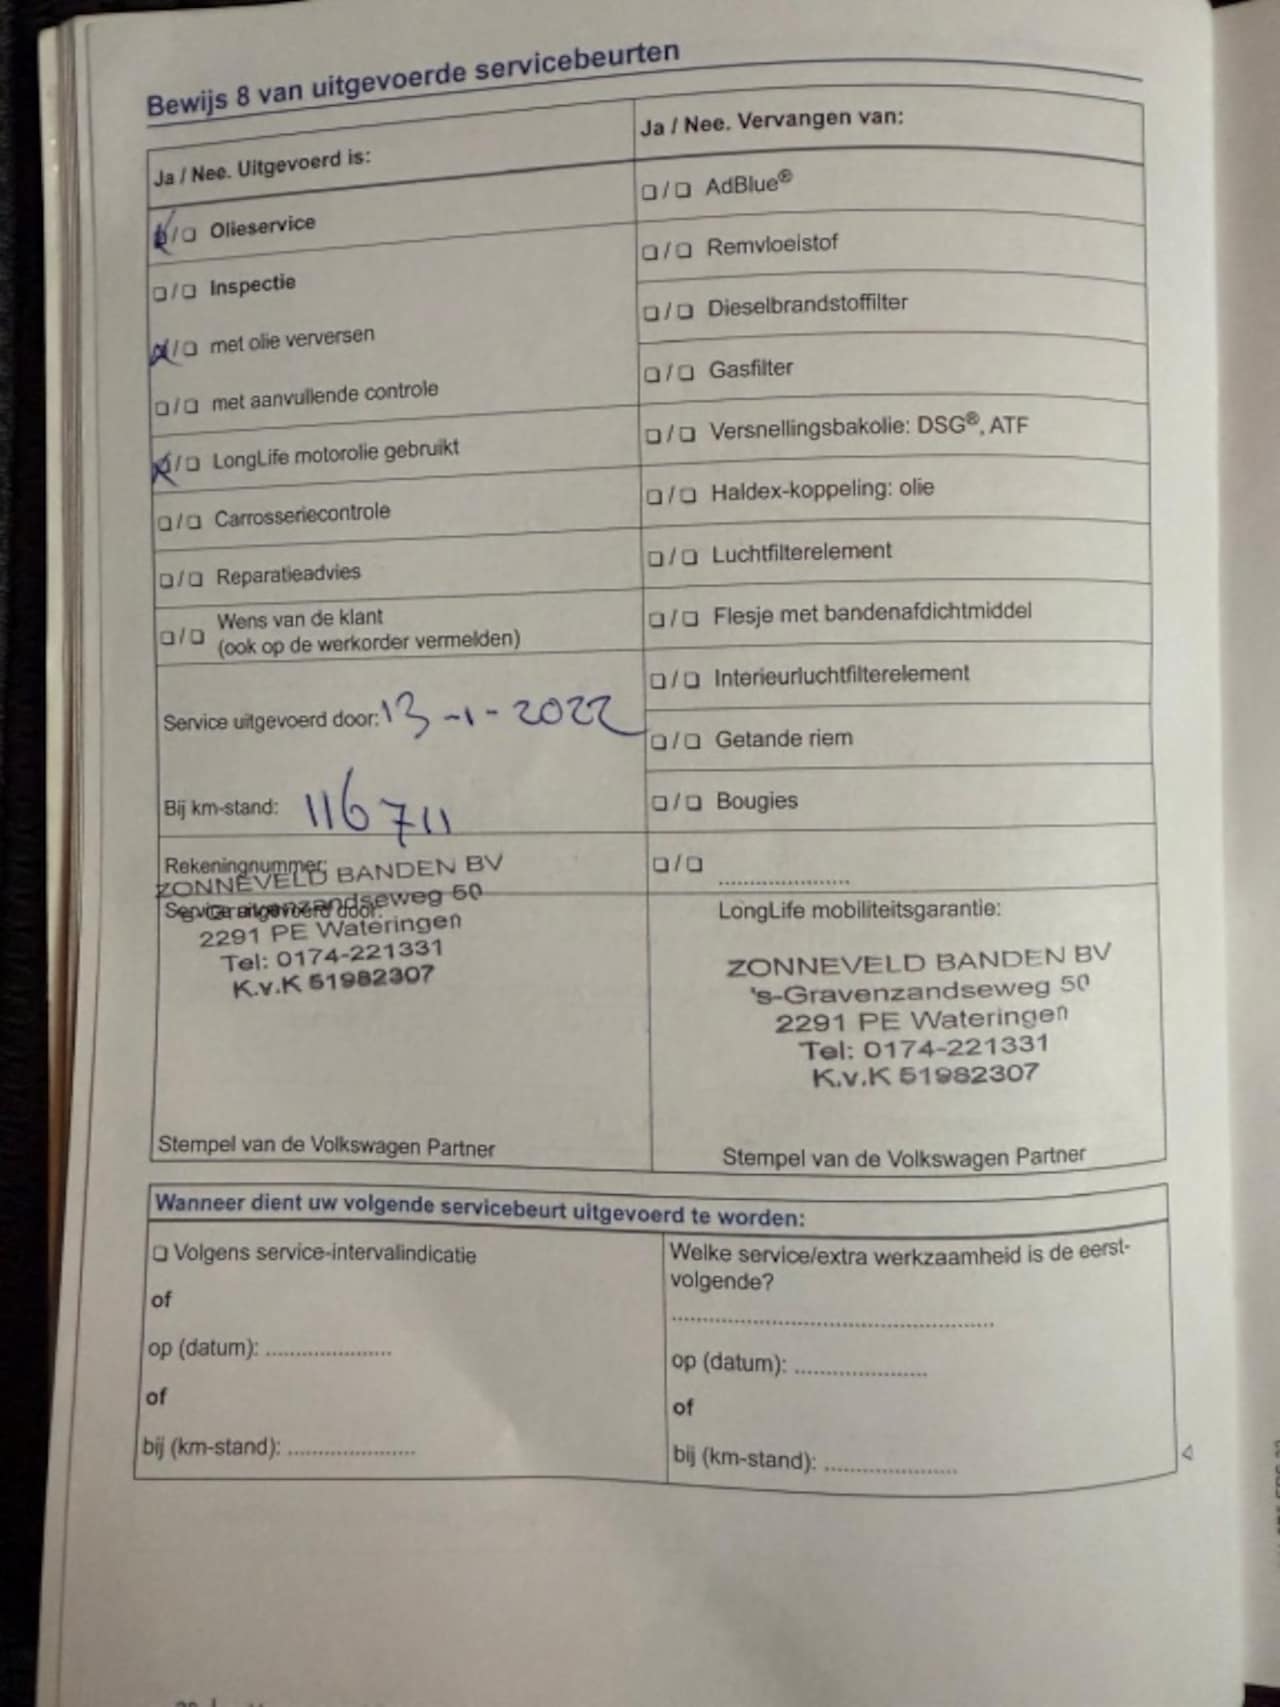 Bewijs 8 van uitgevoerde servicebeurten
Ja / Nee. Uitgevoerd is:
❏/❏ Olieservice
❏/❏ Inspectie
❏/❏ met olie verversen
❏/❏ met aanvullende controle
❏/❏ LongLife motorolie gebruikt
❏/❏ Carrosseriecontrole
❏/❏ Reparatieadvies
❏/❏ Wens van de klant
(ook op de werkorder vermelden)
Service uitgevoerd door: 13-1-2022
Bij km-stand: 116711
Rekeningnummer:
ZONNEVELD BANDEN BV
Service uitgevoerd door:
's-Gravenzandseweg 50
2291 PE Wateringen
Tel: 0174-221331
K.v.K 51982307
Stempel van de Volkswagen Partner
Ja / Nee. Vervangen van:
❏/❏ AdBlue®
❏/❏ Remvloeistof
❏/❏ Dieselbrandstoffilter
❏/❏ Gasfilter
❏/❏ Versnellingsbakolie: DSG®, ATF
❏/❏ Haldex-koppeling: olie
❏/❏ Luchtfilterelement
❏/❏ Flesje met bandenafdichtmiddel
❏/❏ Interieurluchtfilterelement
❏/❏ Getande riem
❏/❏ Bougies
❏/❏ ....................
LongLife mobiliteitsgarantie:
ZONNEVELD BANDEN BV
's-Gravenzandseweg 50
2291 PE Wateringen
Tel: 0174-221331
K.v.K 51982307
Stempel van de Volkswagen Partner
Wanneer dient uw volgende servicebeurt uitgevoerd te worden:
❏ Volgens service-intervalindicatie
of
op (datum): ....................
of
bij (km-stand): ....................
Welke service/extra werkzaamheid is de eerst-
volgende?
..................................................
op (datum): ....................
of
bij (km-stand): ....................